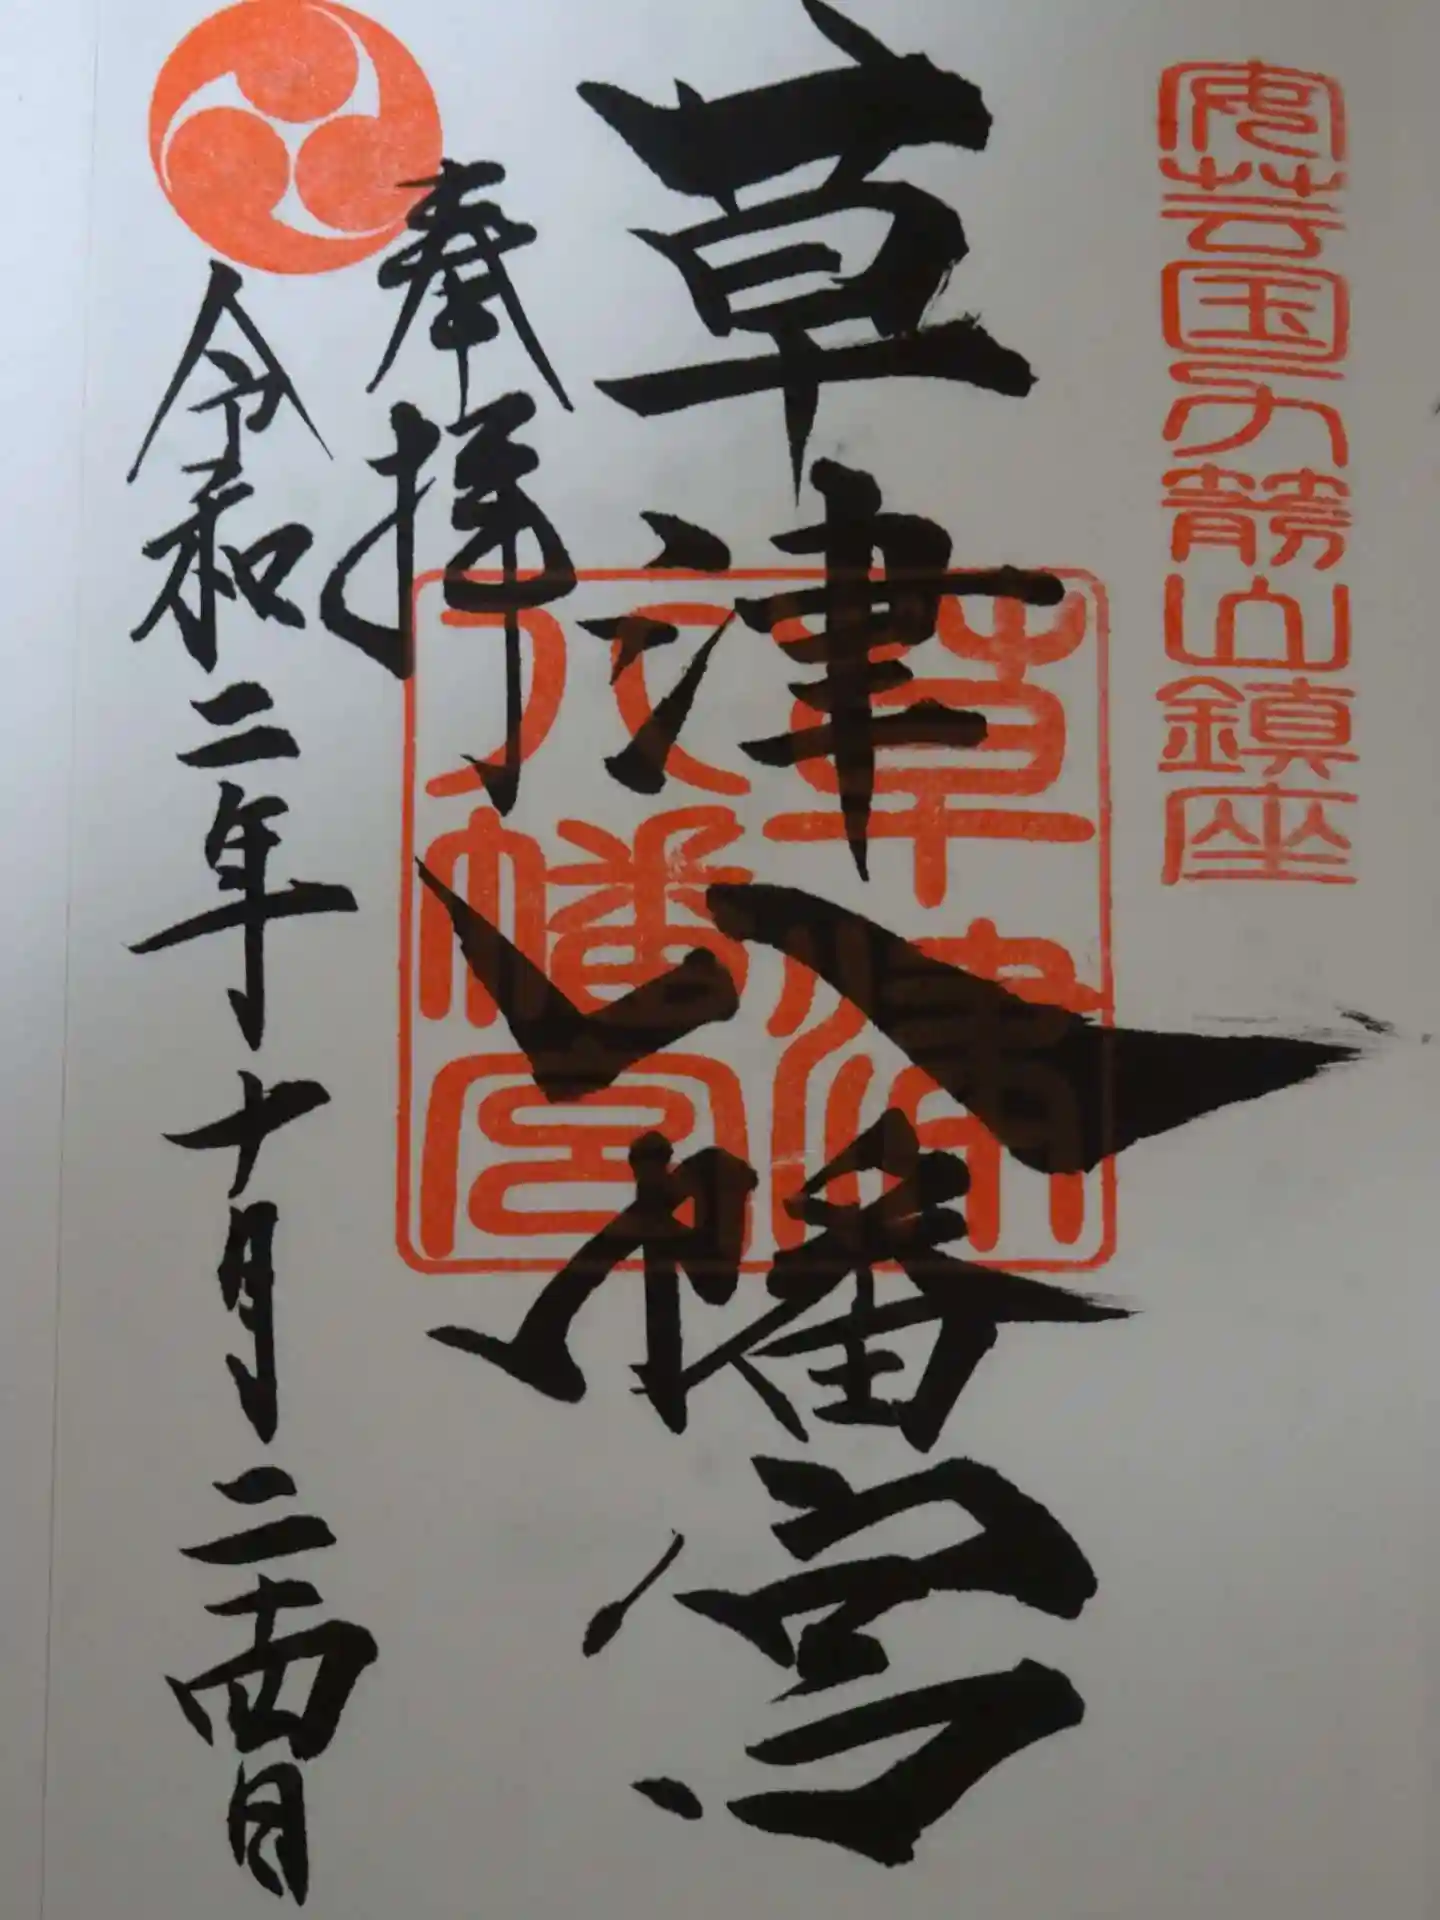 安芸国力勝山鎮座
草津八幡宮
草津
八幡宮
奉拝
令和二年十月二十四日